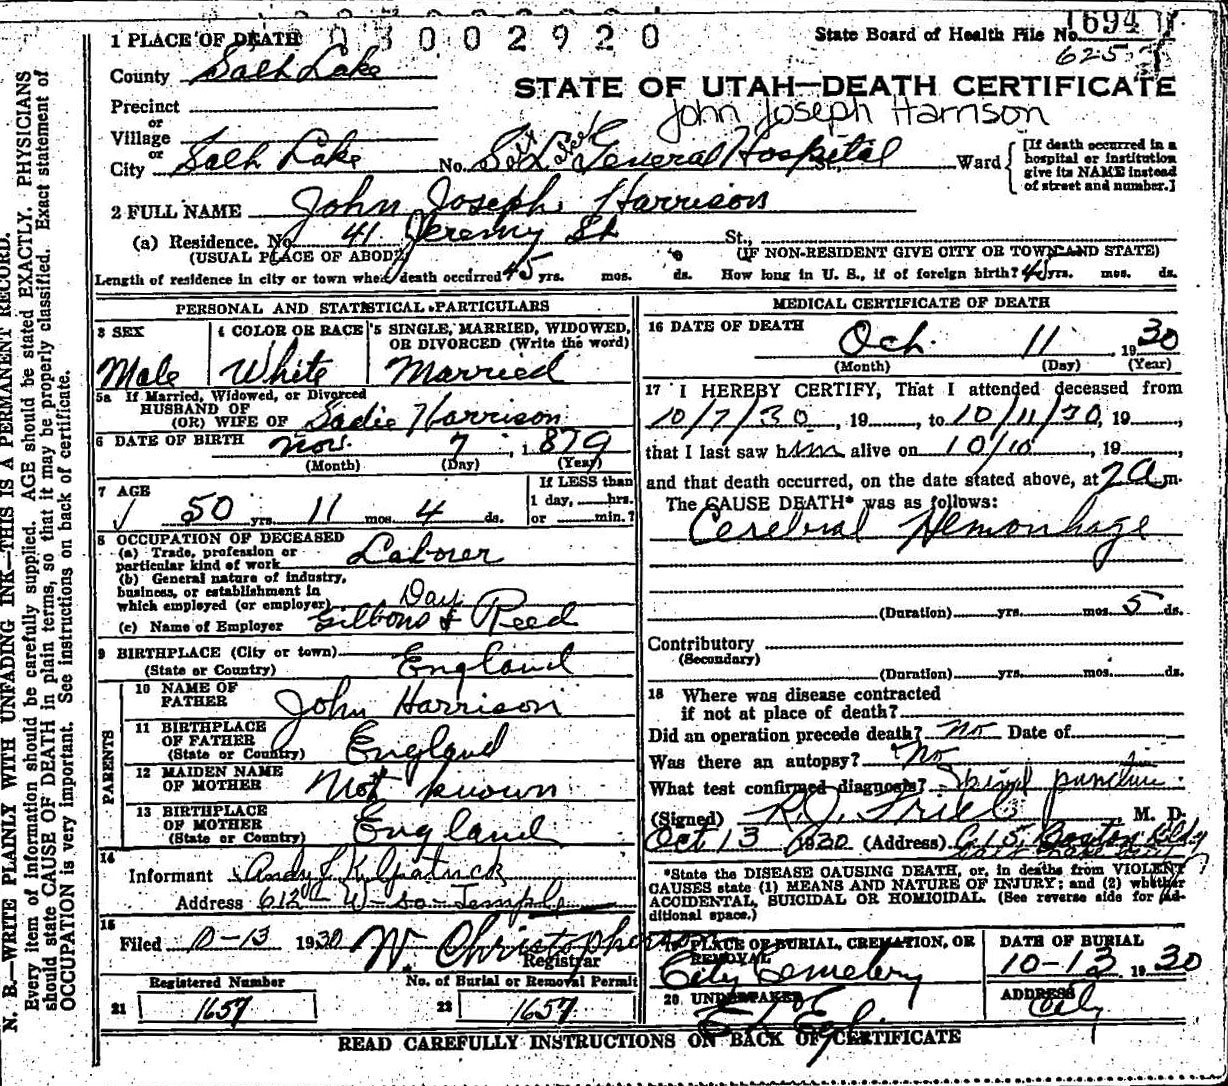 1 PLACE OF DEATH 3 0 0 2 9 2 0
State Board of Health File No. 1694
625
County Salt Lake
STATE OF UTAH—DEATH CERTIFICATE
Precinct
or
Village
John Joseph Harrison
or
City Salt Lake No. Salt Lake General Hospital St., Ward
[If death occurred in a hospital or institution give its NAME instead of street and number.]
2 FULL NAME John Joseph Harrison
(a) Residence. No. 41 Jeremy St St.,
(USUAL PLACE OF ABODE) (IF NON-RESIDENT GIVE CITY OR TOWN AND STATE)
Length of residence in city or town where death occurred 45 yrs. mos. ds. How long in U. S., if of foreign birth? 45 yrs. mos. ds.
PERSONAL AND STATISTICAL PARTICULARS
3 SEX
Male
4 COLOR OR RACE
White
5 SINGLE, MARRIED, WIDOWED,
OR DIVORCED (Write the word)
Married
5a If Married, Widowed, or Divorced
HUSBAND OF
(OR) WIFE OF Sadie Harrison
6 DATE OF BIRTH Nov. 7, 1879
(Month) (Day) (Year)
7 AGE
50 yrs. 11 mos. 4 ds.
If LESS than
1 day, hrs.
or min.?
8 OCCUPATION OF DECEASED
(a) Trade, profession or
particular kind of work Laborer
(b) General nature of industry,
business, or establishment in
which employed (or employer) Day
(c) Name of Employer Gibbons & Reed
9 BIRTHPLACE (City or town)
(State or Country) England
PARENTS
10 NAME OF
FATHER John Harrison
11 BIRTHPLACE
OF FATHER
(State or Country) England
12 MAIDEN NAME
OF MOTHER Not known
13 BIRTHPLACE
OF MOTHER
(State or Country) England
14
Informant Andy J Kilpatrick
Address 612 W So Temple
15
Filed 10-13 1930 W. Christopherson
Registrar
Registered Number
21 1657
No. of Burial or Removal Permit
22 1657
MEDICAL CERTIFICATE OF DEATH
16 DATE OF DEATH
Oct. 11, 1930
(Month) (Day) (Year)
17 I HEREBY CERTIFY, That I attended deceased from
10/7/30, 19, to 10/11/30, 19,
that I last saw him alive on 10/10, 19,
and that death occurred, on the date stated above, at 2 a m.
The CAUSE DEATH* was as follows:
Cerebral Hemorrhage
(Duration) yrs. mos. 5 ds.
Contributory
(Secondary)
(Duration) yrs. mos. ds.
18 Where was disease contracted
if not at place of death?
Did an operation precede death? No Date of
Was there an autopsy? No
What test confirmed diagnosis? Spinal puncture
(Signed) M. D.
Oct 13 1930 (Address) Boston Bldg
*State the DISEASE CAUSING DEATH, or, in deaths from VIOLENT
CAUSES state (1) MEANS AND NATURE OF INJURY; and (2) whether
ACCIDENTAL, SUICIDAL OR HOMICIDAL. (See reverse side for additional space.)
19 PLACE OF BURIAL, CREMATION, OR
REMOVAL
City Cemetery
DATE OF BURIAL
10-13 1930
20 UNDERTAKER
ADDRESS
City
READ CAREFULLY INSTRUCTIONS ON BACK OF CERTIFICATE
N. B.—WRITE PLAINLY WITH UNFADING INK—THIS IS A PERMANENT RECORD.
Every item of information should be carefully supplied. AGE should be stated EXACTLY. PHYSICIANS
should state CAUSE OF DEATH in plain terms, so that it may be properly classified. Exact statement of
OCCUPATION is very important. See instructions on back of certificate.